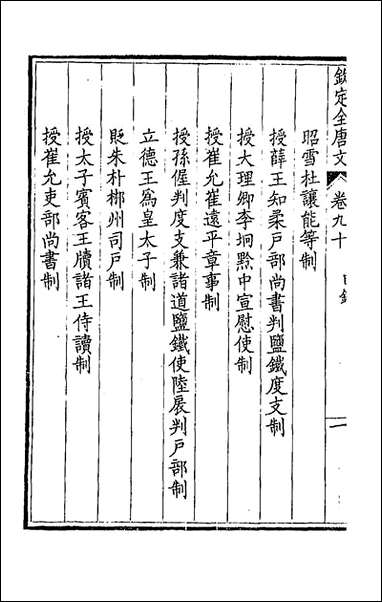 欽定全唐文 卷九十 目錄 一
昭雪杜讓能等制
授薛王知柔戶部尚書判鹽鐵度支制
授大理卿李坰黔中宣慰使制
授崔允崔遠平章事制
授孫偓判度支兼諸道鹽鐵使陸展判戶部制
立德王爲皇太子制
貶朱朴郴州司戶制
授太子賓客王牘諸王侍讀制
授崔允吏部尚書制